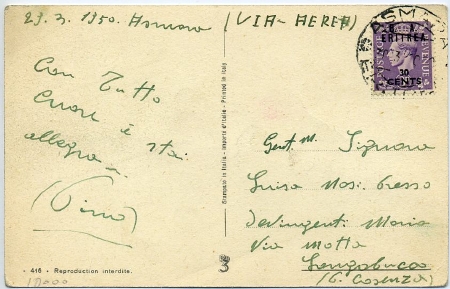 23.3.1950. Asmara (VIA-AEREA)
Con Tutto
Cuore e stai
allegra
(Pino)
416 - Reproduction interdite.
Stampato in Italia - Imprimé d'Italie - Printed in Italy
3
ASMARA
B. A.
ERITREA
POSTAGE REVENUE
30
CENTS
Gent. M. Signora
Luisa Mosi presso
Devingenti Maria
Via Motta
Longobucco
(P. Cosenza)